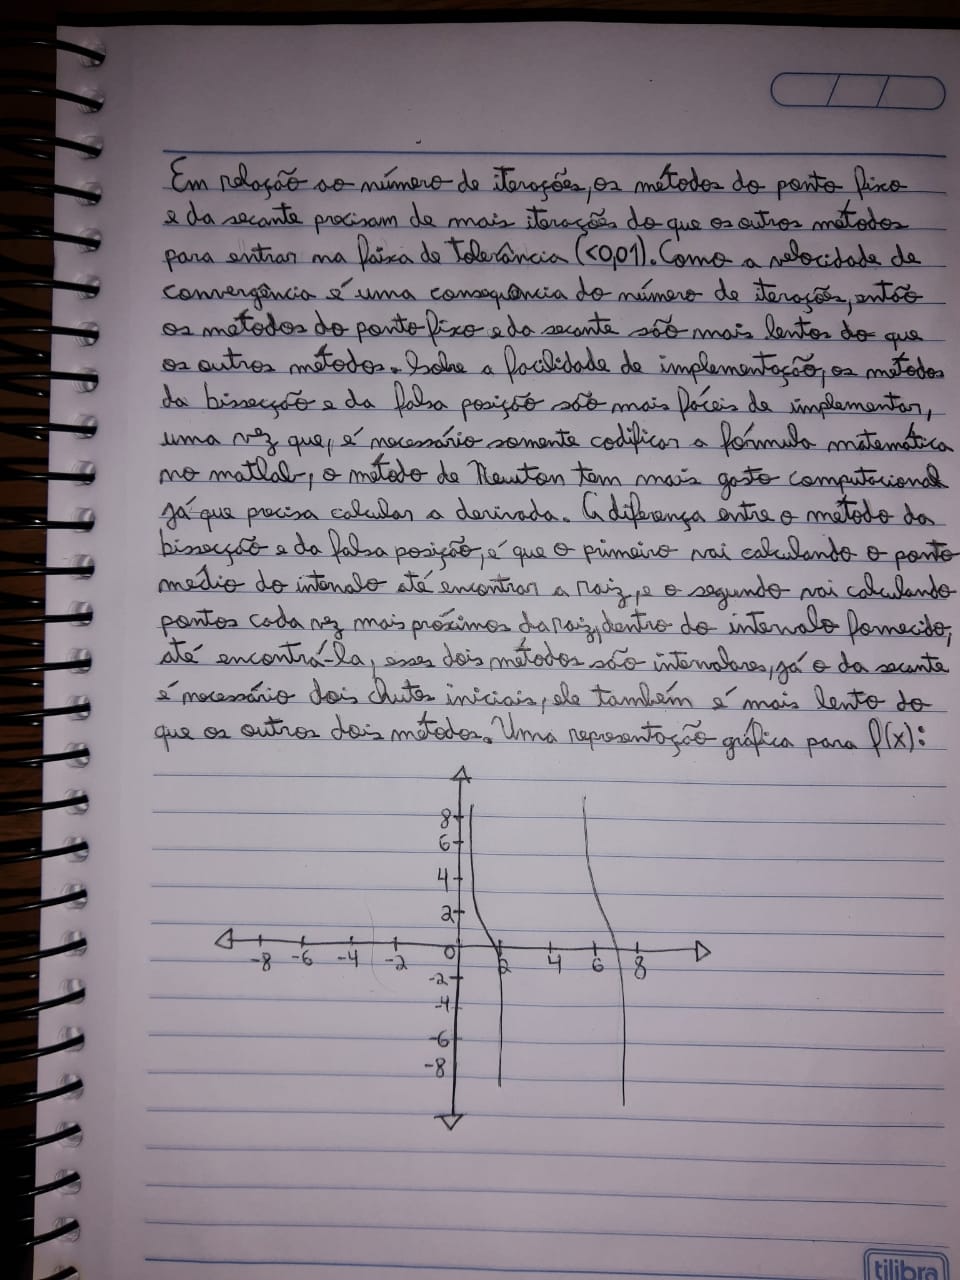 Em relação ao número de iterações, os métodos do ponto fixo
e da secante precisam de mais iterações do que os outros métodos
para entrar na faixa de tolerância (<0,01). Como a velocidade de
convergência é uma consequência do número de iterações, então
os métodos do ponto fixo e da secante são mais lentos do que
os outros métodos. Sobre a facilidade de implementação, os métodos
da bissecção e da falsa posição são mais fáceis de implementar,
uma vez que, é necessário somente codificar a fórmula matemática
no matlab, o método de Newton tem mais gasto computacional
já que precisa calcular a derivada. A diferença entre o método da
bissecção e da falsa posição, é que o primeiro vai calculando o ponto
médio do intervalo até encontrar a raiz, e o segundo vai calculando
pontos cada vez mais próximos da raiz, dentro do intervalo fornecido,
até encontrá-la, esses dois métodos são intervalares, já o da secante
é necessário dois chutes iniciais, ele também é mais lento do
que os outros dois métodos. Uma representação gráfica para f(x):
8
6
4
2
-8 -6 -4 -2 0 2 4 6 8
-2
-4
-6
-8
tilibra